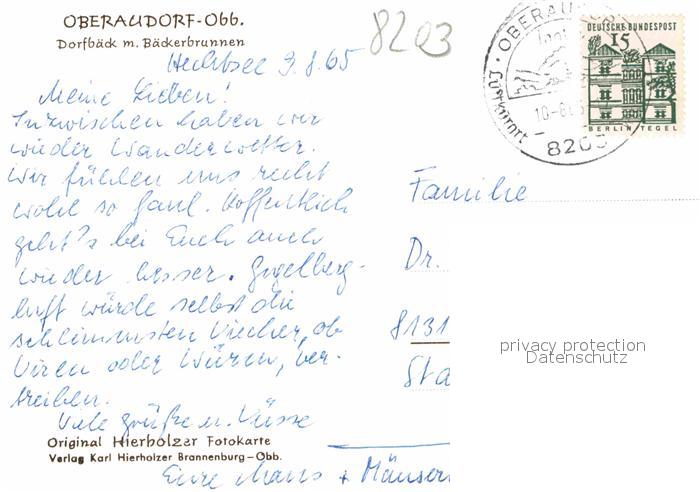 OBERAUDORF-Obb.
Dorfbäck m. Bäckerbrunnen
8203
Hechtsee 9.8.65
Meine Lieben!
Inzwischen haben wir
wieder Wanderwetter.
Wir fühlen uns recht
wohl so faul. Hoffentlich
geht's bei Euch auch
wieder besser. Gipfelberg-
luft würde selbst die
schlimmsten Viecher, ob
Viren oder Würmer, ver-
treiben.
Viele Grüße u. Küsse
Eure Maus + Mäuser
Original Hierholzer Fotokarte
Verlag Karl Hierholzer Brannenburg-Obb.
OBERAUDORF
Luftkurort
8203
DEUTSCHE BUNDESPOST
15
BERLIN TEGEL
Familie
Dr.
8131
Sta
privacy protection
Datenschutz